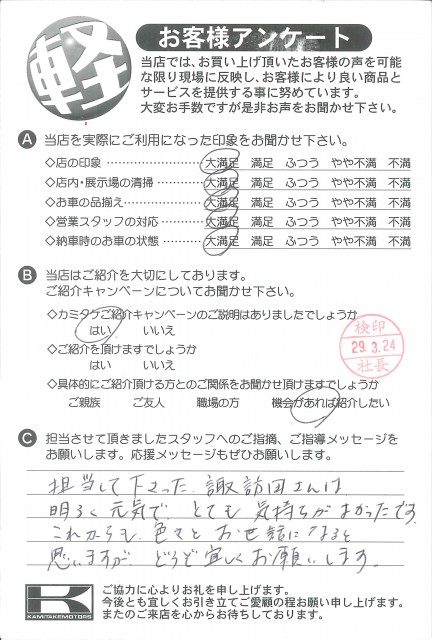 軽
お客様アンケート
当店では、お買い上げ頂いたお客様の声を可能
な限り現場に反映し、お客様により良い商品と
サービスを提供する事に努めています。
大変お手数ですが是非お声をお聞かせ下さい。
A 当店を実際にご利用になった印象をお聞かせ下さい。
◇店の印象 大満足 満足 ふつう やや不満 不満
◇店内・展示場の清掃 大満足 満足 ふつう やや不満 不満
◇お車の品揃え 大満足 満足 ふつう やや不満 不満
◇営業スタッフの対応 大満足 満足 ふつう やや不満 不満
◇納車時のお車の状態 大満足 満足 ふつう やや不満 不満
B 当店はご紹介を大切にしております。
ご紹介キャンペーンについてお聞かせ下さい。
◇カミタケご紹介キャンペーンのご説明はありましたでしょうか
はい いいえ
◇ご紹介を頂けますでしょうか
はい いいえ
◇具体的にご紹介頂ける方とのご関係をお聞かせ頂けますでしょうか
ご親族 ご友人 職場の方 機会があれば紹介したい
検印
29.3.24
社長
C 担当させて頂きましたスタッフへのご指摘、ご指導メッセージを
お願いします。応援メッセージもぜひお願いします。
担当して下さった 諏訪田さんは
明るく元気で、とても気持ちがよかったです。
これからも、色々とお世話になると
思いますが、どうぞ宜しくお願いします。
K
KAMITAKEMOTORS
ご協力に心よりお礼を申し上げます。
今後とも宜しくお引き立てご愛顧の程お願い申し上げます。
またのご来店を心からお待ちしております。